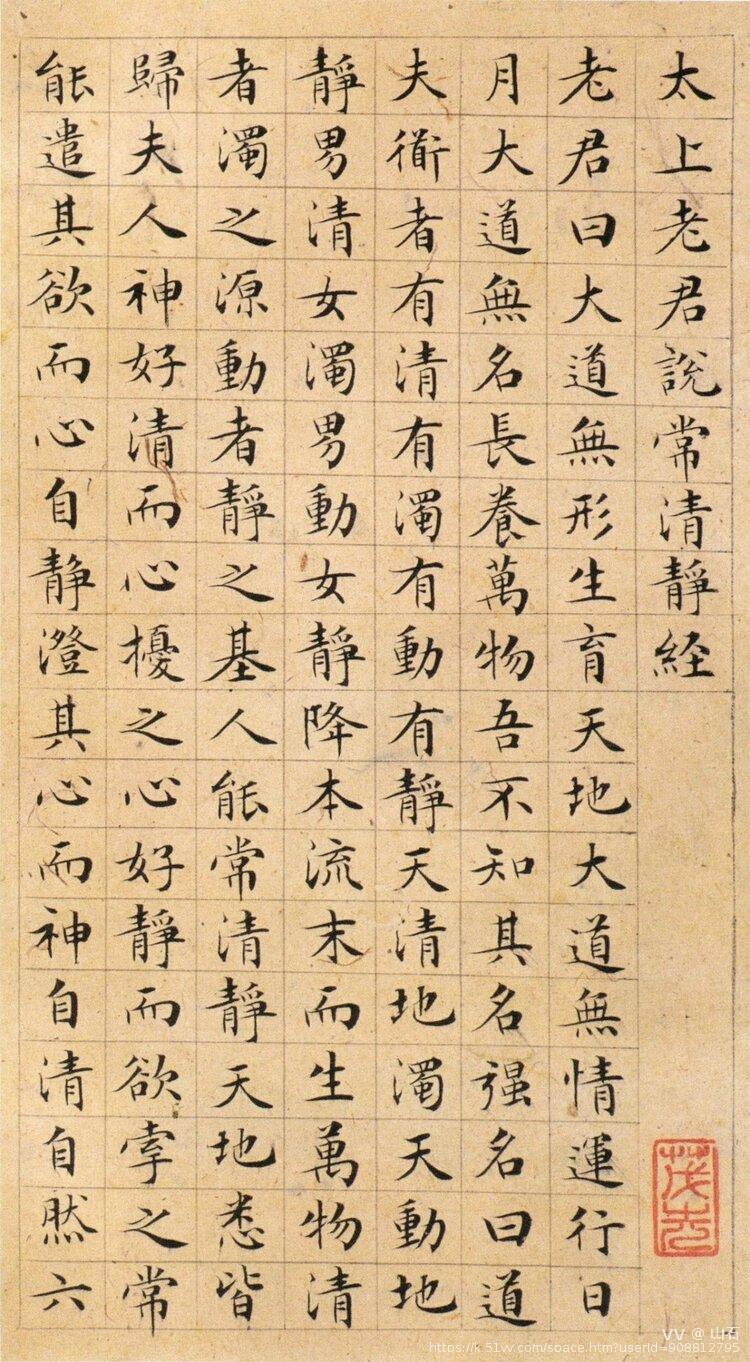 太上老君說常清靜経
老君曰大道無形生育天地大道無情運行日
月大道無名長養萬物吾不知其名强名曰道
夫衜者有清有濁有動有靜天清地濁天動地
靜男清女濁男動女靜降本流末而生萬物清
者濁之源動者靜之基人能常清靜天地悉皆
歸夫人神好清而心擾之心好靜而欲牽之常
能遣其欲而心自靜澄其心而神自清自然六
VV @ 山石
https://k.51vv.com/space.htm?userId=908812795